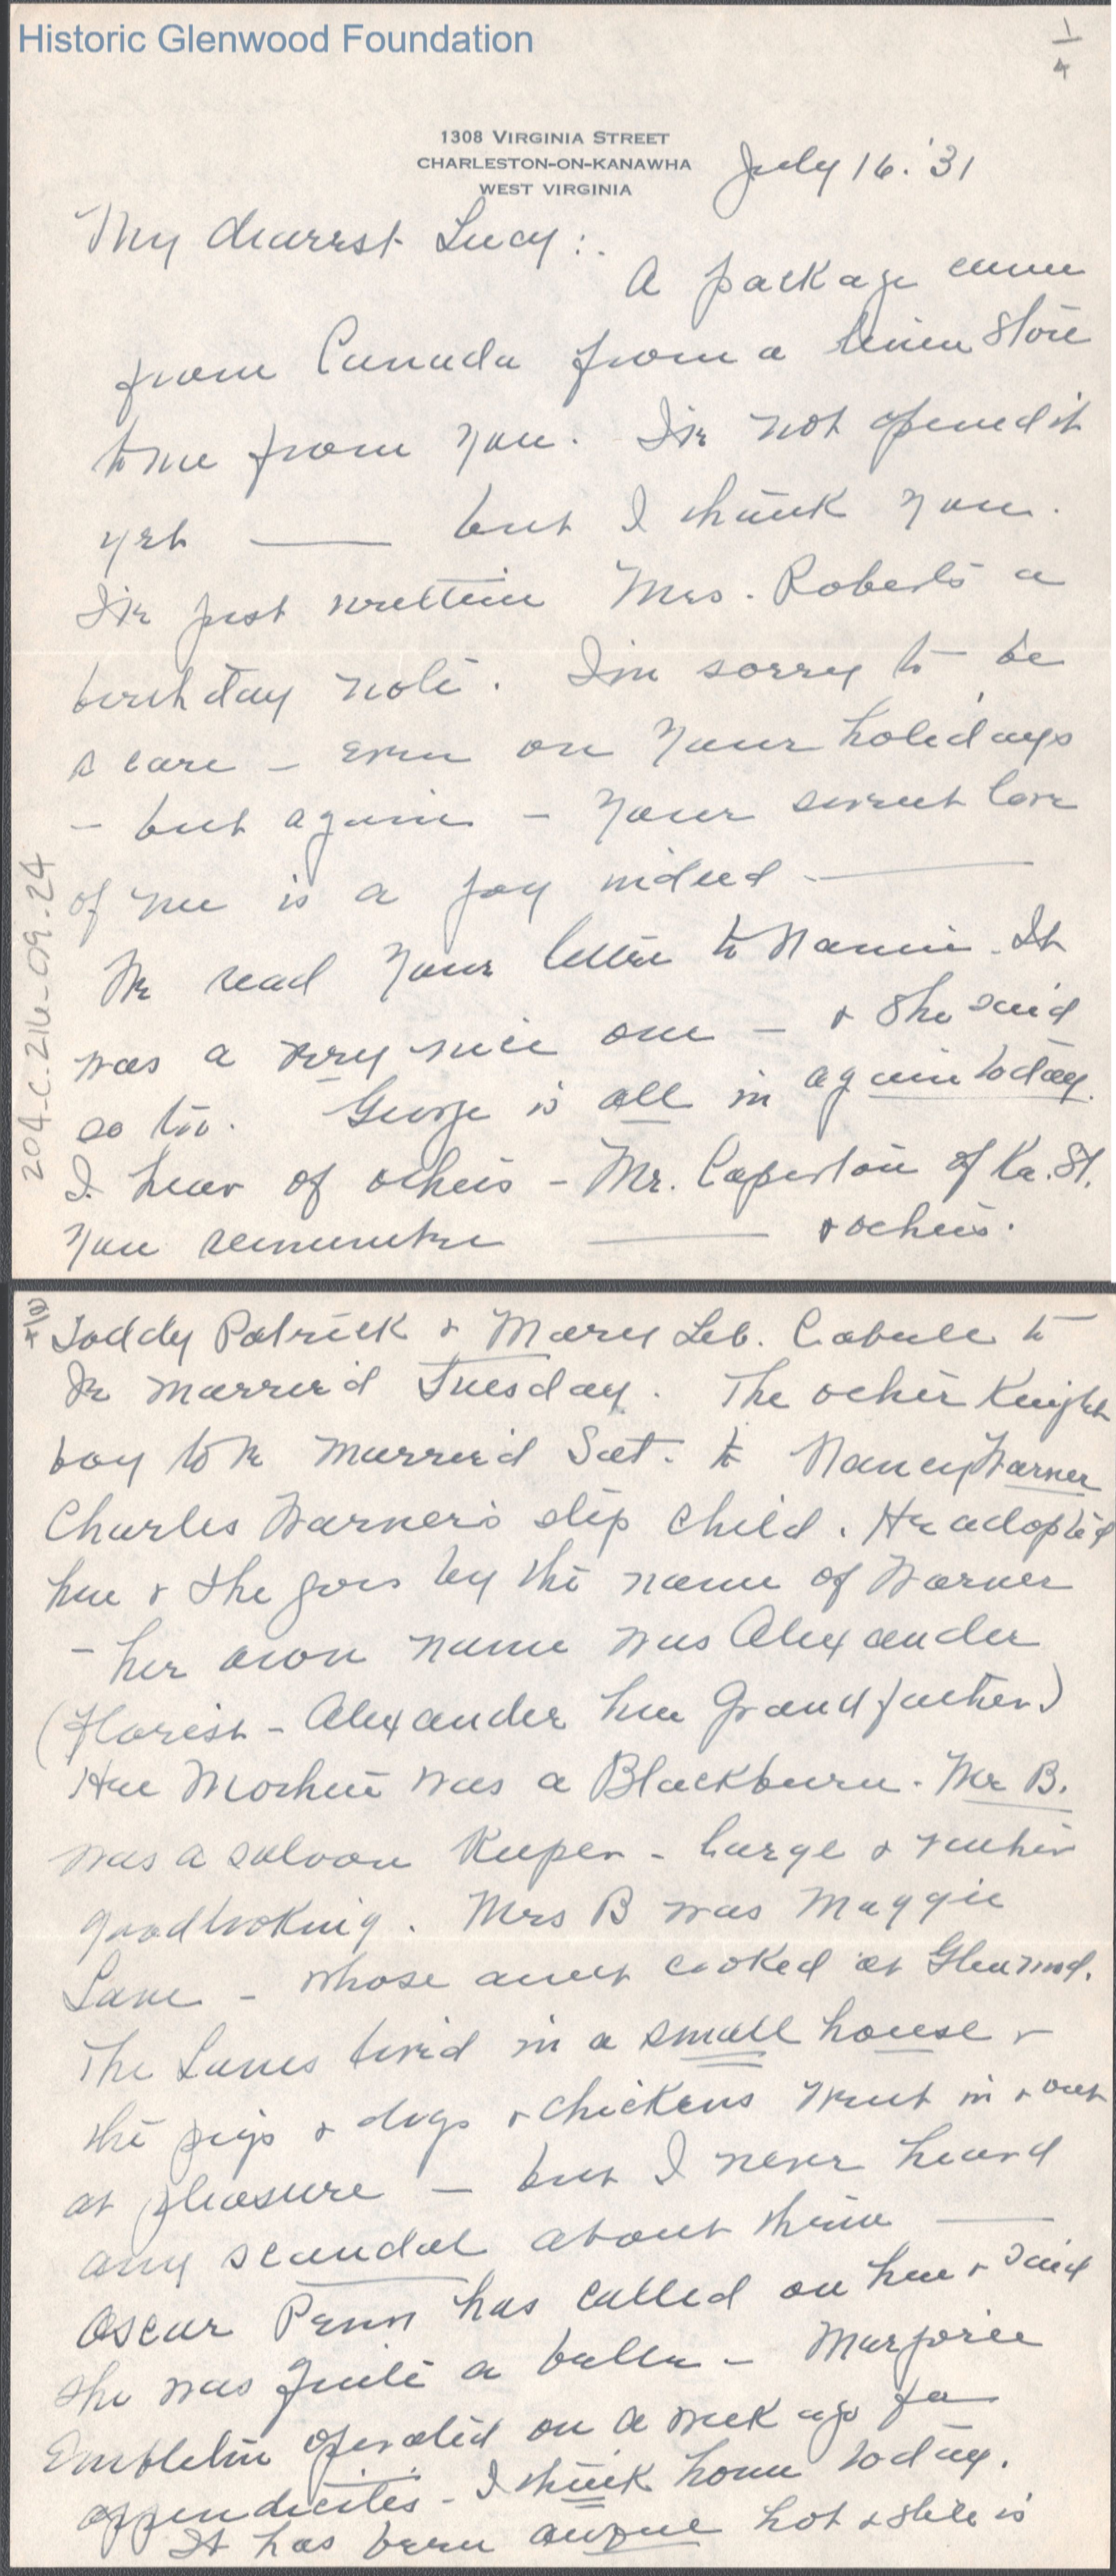 Historic Glenwood Foundation
1/4
1308 VIRGINIA STREET
CHARLESTON-ON-KANAWHA
WEST VIRGINIA
July 16. '31
My dearest Lucy:
A package came
from Canada from a linen store
to me from you. I've not opened it
yet — but I thank you.
I've just written Mrs. Roberts a
birthday note. I'm sorry to be
a care - even on your holidays
- but again - your sweet love
of me is a joy indeed —
We read your letter to Nannie. It
was a very nice one - & she said
so too. George is all in again today.
I hear of others - Mr. Caperton of Ka. St.
you remember — & others.
204-C.216-09.24
2/4
Toddy Patrick & Mary Leb. Cabell to
be married Tuesday. The other Knight
boy to be married Sat. to Nancy Warner
Charles Warner's step child. He adopted
her & she goes by the name of Warner
- her own name was Alexander
(Florist - Alexander her Grandfather)
Her Mother was a Blackburn. Mr B.
was a saloon keeper - large & rather
goodlooking. Mrs B was Maggie
Lane - whose aunt cooked at Glenwood.
The Lanes lived in a small house &
the pigs & dogs & chickens went in & out
at pleasure - but I never heard
any scandal about them —
Oscar Penn has called on her & said
she was quite a belle - Marjorie
operated on a week ago for
appendicites - I think home today.
It has been hot & still is